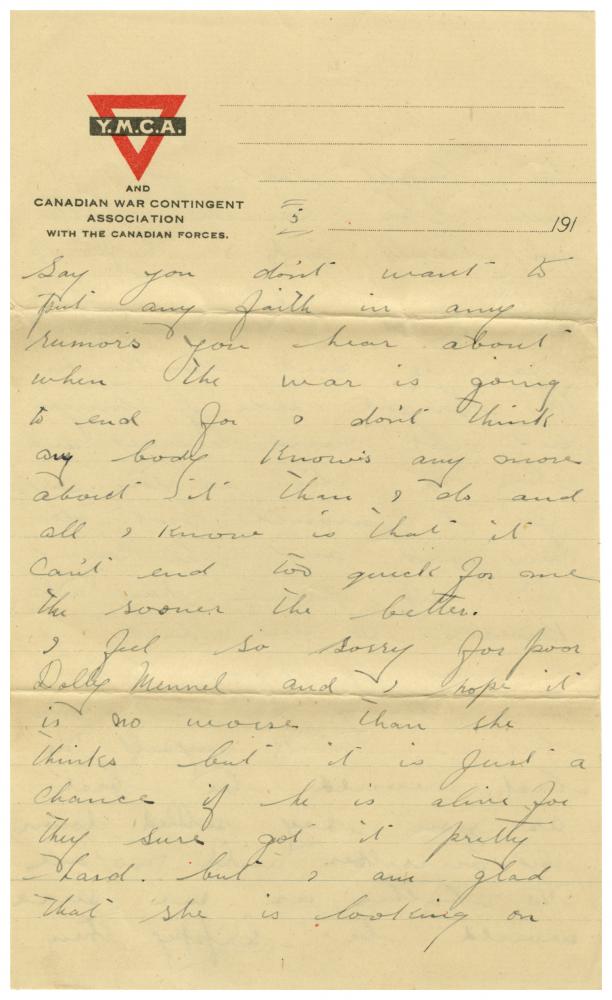 Y.M.C.A.
AND
CANADIAN WAR CONTINGENT
ASSOCIATION
WITH THE CANADIAN FORCES.
5
191
Say you don't want to
put any faith in any
rumors you hear about
when the war is going
to end for I don't think
any body knows any more
about it than I do and
all I know is that it
can't end too quick for me
the sooner the better.
I feel so sorry for poor
Dolly Mennel and I hope it
is no worse than she
thinks but it is just a
chance if he is alive for
they sure got it pretty
hard. but I am glad
that she is looking on